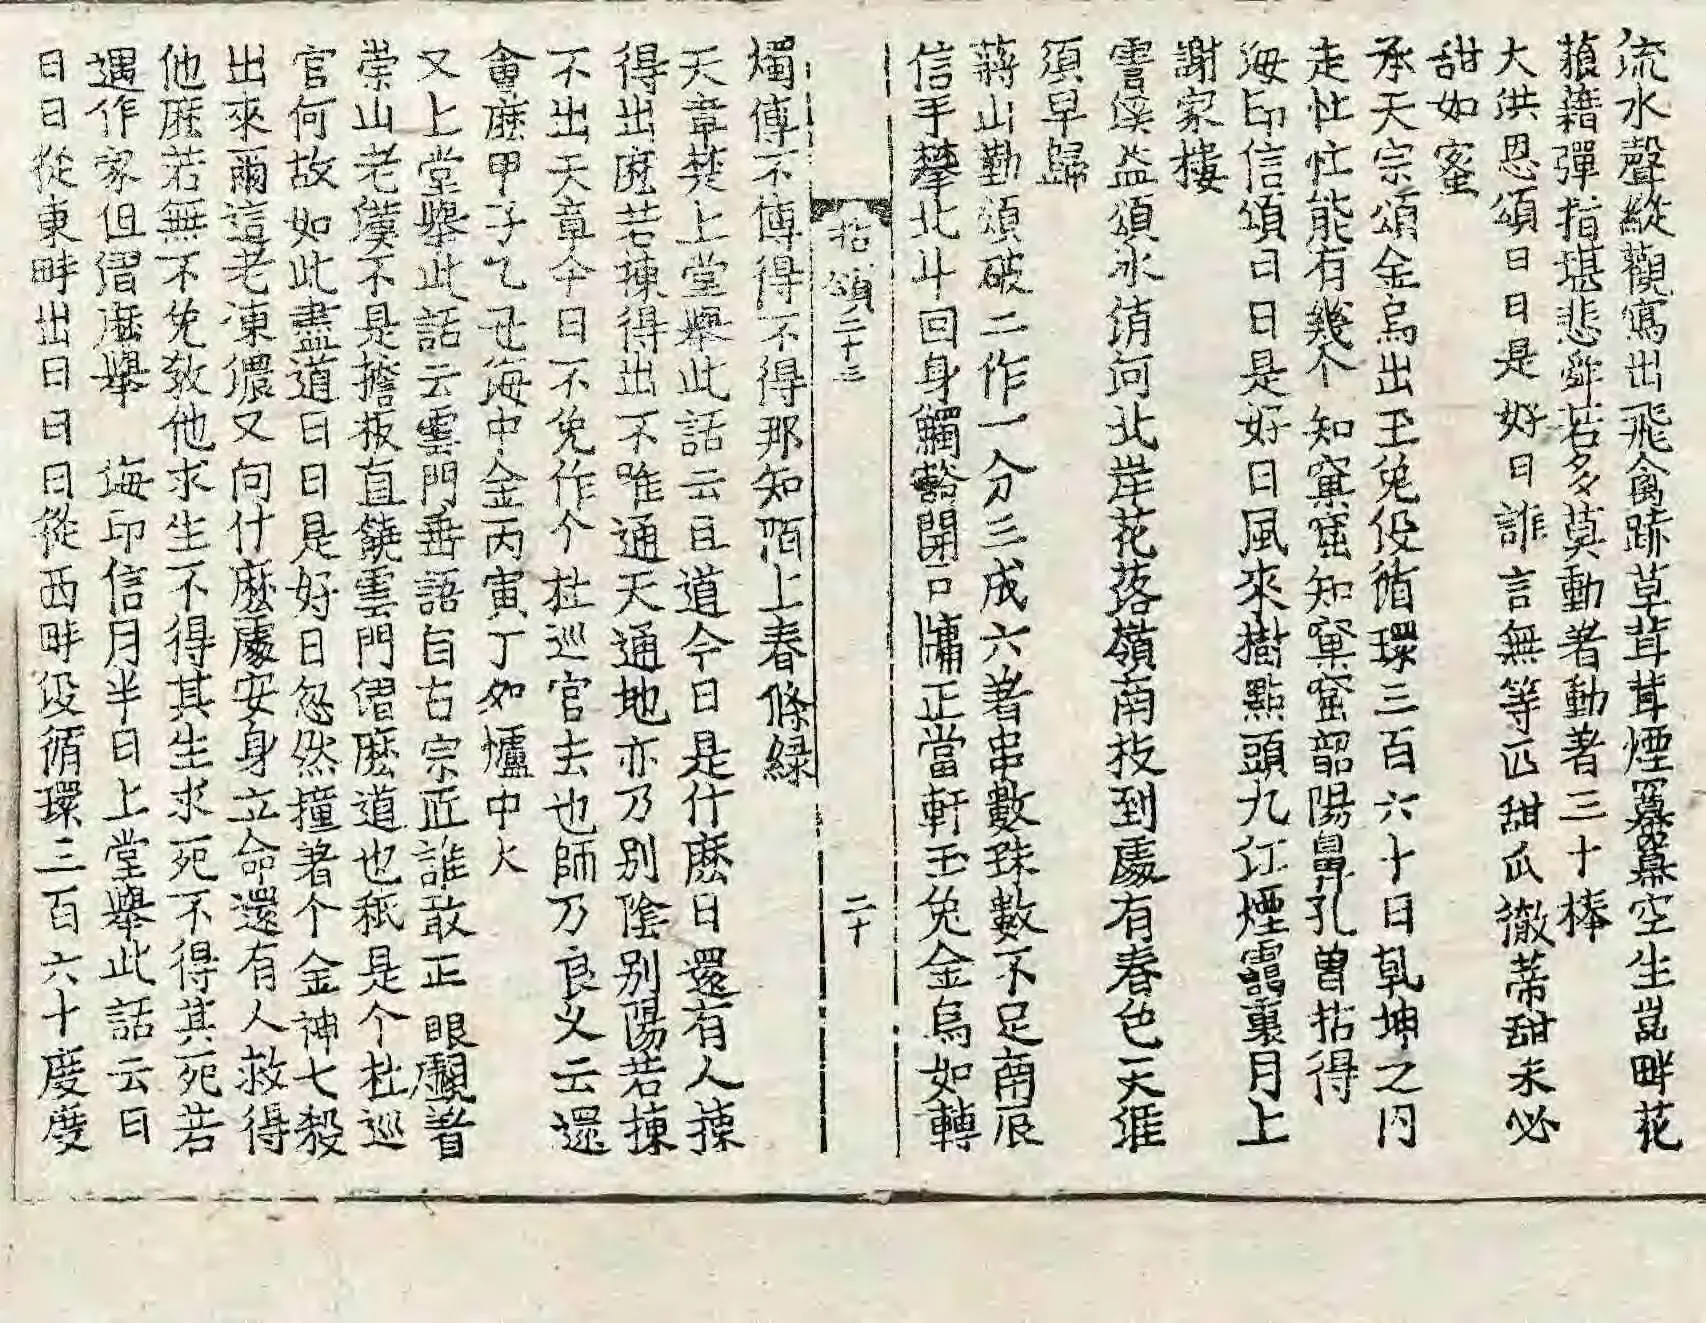 流水聲縱觀寫出飛禽跡草茸茸煙羃羃空生嵓畔花
狼藉彈指堪悲舜若多莫動着動着三十棒
大洪恩頌日日是好日誰言無等匹甜瓜徹蒂甜未必
甜如蜜
承天宗頌金烏出玉兔役循環三百六十日乾坤之內
走忙忙能有幾个知窠窟知窠窟韶陽鼻孔曾拈得
海印信頌日日是好日風來樹點頭九江煙靄裏月上
謝家樓
霅溪益頌氷消河北岸花落嶺南枝到處有春色天涯
須早歸
蔣山勤頌破二作一分三成六着串數珠數不足南辰
信手攀北斗回身觸豁開戶牖正當軒玉兔金烏如轉
拈頌二十三
二十
燭傳不傳得不得那知陌上春條綠
天章楚上堂舉此話云且道今日是什麽日還有人揀
得出麽若揀得出不唯通天通地亦乃別陰別陽若揀
不出天章今日不免作个杜巡官去也師乃良久云還
會麽甲子乙丑海中金丙寅丁卯爐中火
又上堂舉此話云雲門垂語自古宗匠誰敢正眼覷着
崇山老漢不是擔板直饒雲門伊麽道也秖是个杜巡
官何故如此盡道日日是好日忽然撞着个金神七殺
出來爾這老凍儂又向什麽處安身立命還有人救得
他麽若無不免敎他求生不得其生求死不得其死若
遇作家但㑥麽舉 海印信月半日上堂舉此話云日
日日從東畔出日日從西畔役循環三百六十度度